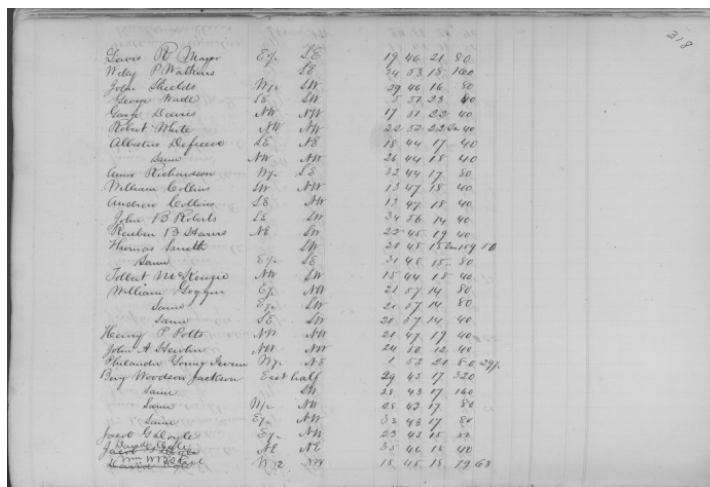 318
Lewis R Mayor E½ SE 19 46 21 80
Wiley P Watkins SE 24 53 18 160
John Shields W½ SW 29 46 16 80
George Wade SE SW 5 51 23 40
Garge Davies NW NW 17 51 22 40
Robert White NW NW 22 52 22 40
Albertus SE NE 18 44 17 40
Same NW NW 26 44 18 40
Amos Richardson W½ SE 32 44 17 80
William Collins SW NW 13 47 18 40
Andrew Collins SE NW 13 47 18 40
John B Roberts SE SW 34 56 14 40
Reuben B NE SW 22 45 19 40
Thomas Smith SW 31 48 15 159 50
Same E½ SE 31 48 15 80
Tolbert McKenzie NW SW 15 44 18 40
William E½ NW 21 57 14 80
Same E½ SW 21 57 14 80
Same SE SW 28 57 14 40
Henry P Potts NW NW 21 47 19 40
John A NW NW 24 50 12 40
Philander Young W½ NE 1 52 21 80 29/
Berry Woodson Jackson East half 29 43 17 320
Same SW 28 43 17 160
Same W½ NW 28 43 17 80
Same E½ NW 32 43 17 80
Jacob G Doyle E½ NW 23 42 15 80
NE NE 35 46 18 40
W½ NW 18 45 18 79 63